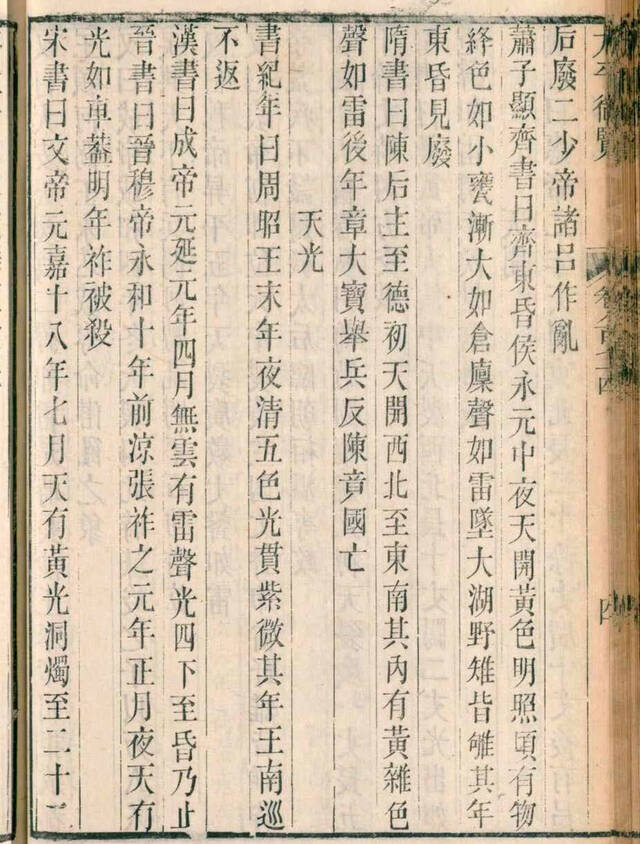 太平御覽 卷八百七十四 四
后廢二少帝諸呂作亂
蕭子顯齊書曰齊東昏侯永元中夜天開黃色明照頃有物
絳色如小甕漸大如倉廩聲如雷墜大湖野雉皆雊其年
東昏見廢
隋書曰陳后主至德初天開西北至東南其內有黃雜色
聲如雷後年章大寶舉兵反陳竟國亡
天光
書紀年曰周昭王末年夜清五色光貫紫微其年王南巡
不返
漢書曰成帝元延元年四月無雲有雷聲光四下至昏乃止
晉書曰晉穆帝永和十年前涼張祚之元年正月夜天有
光如車蓋明年祚被殺
宋書曰文帝元嘉十八年七月天有黃光洞燭至二十二